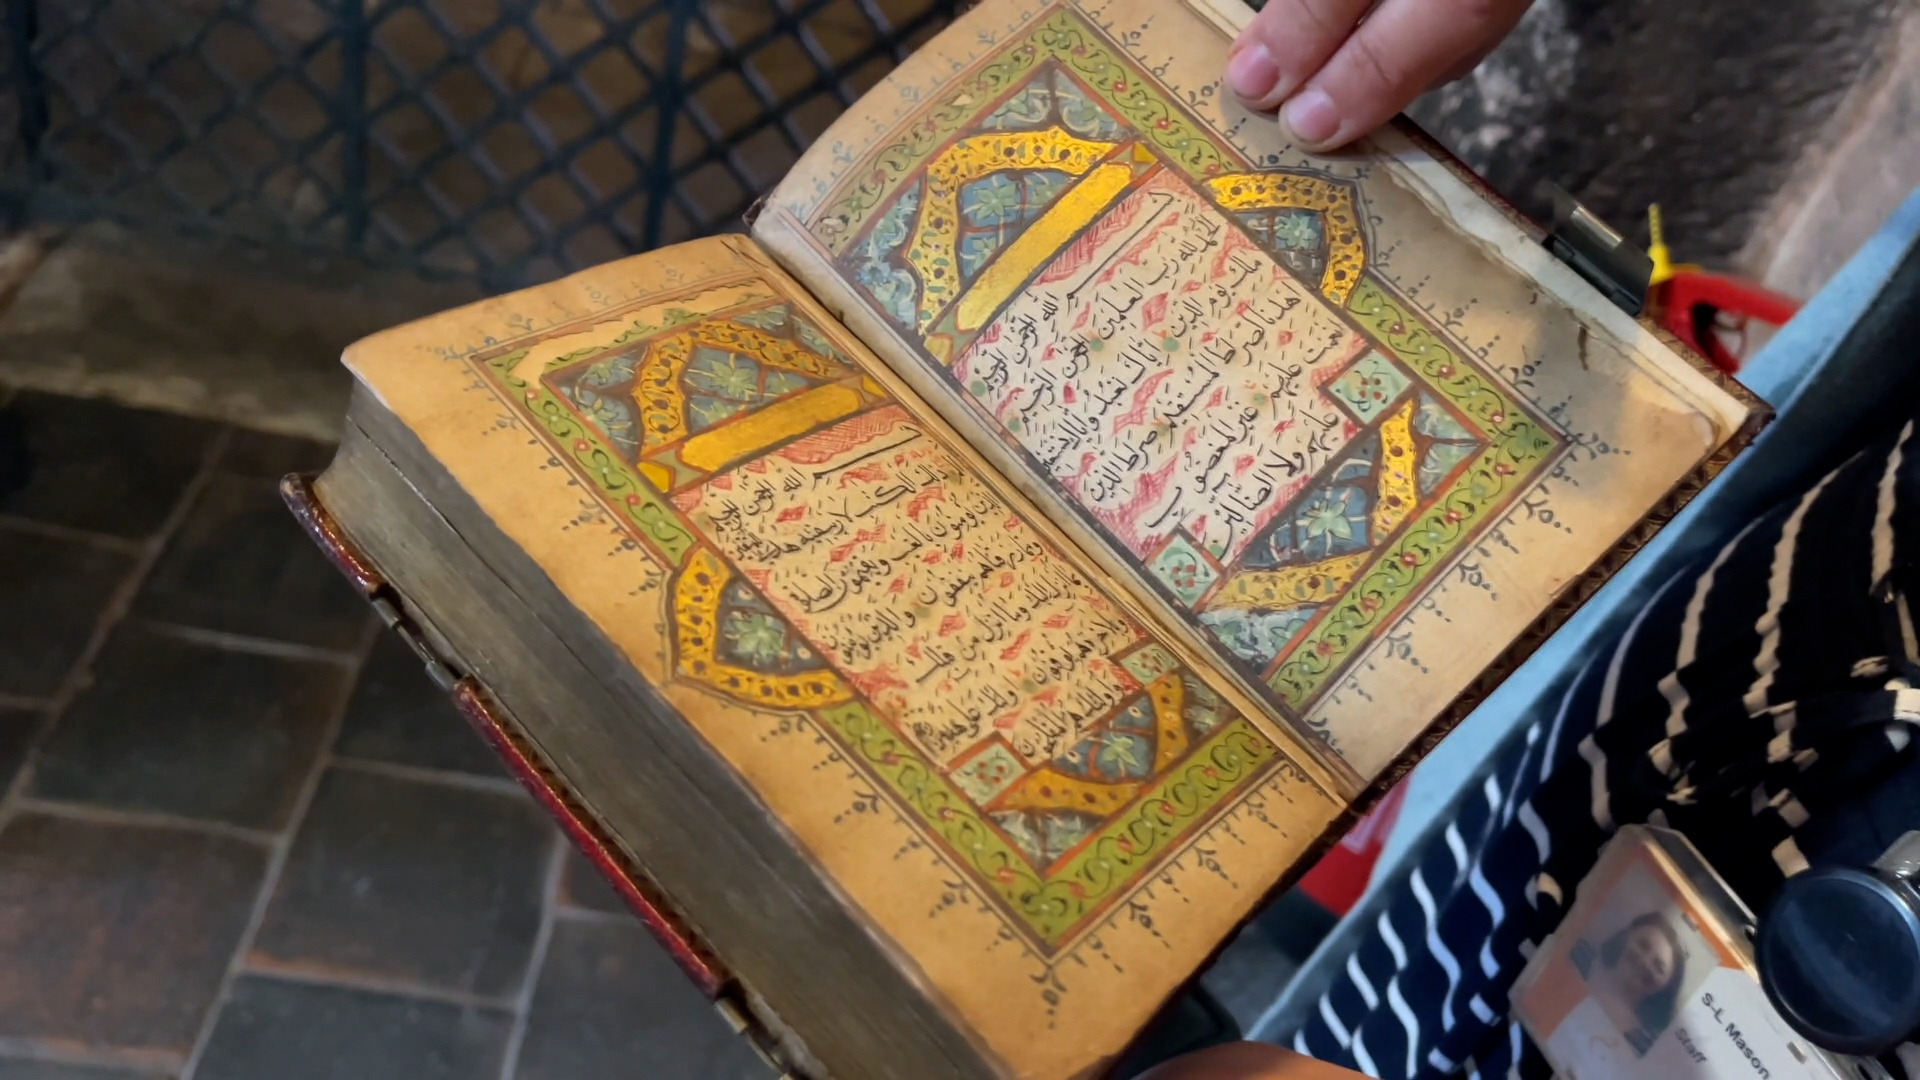 بسم الله الرحمن الرحيم
الحمد لله رب العلمين الرحمن الرحيم
ملك يوم الدين اياك نعبد واياك نستعين
اهدنا الصرط المستقيم صرط الذين
انعمت عليهم غير المغضوب
عليهم ولا الضالين
بسم الله الرحمن الرحيم
الم ذلك الكتب لا ريب فيه هدى
الذين يؤمنون بالغيب ويقيمون الصلوة
ينفقون والذين يؤمنون
اليك وما انزل من قبلك
هم يوقنون اولئك على هدى
واولئك هم المفلحون
S-L Mason
Staff